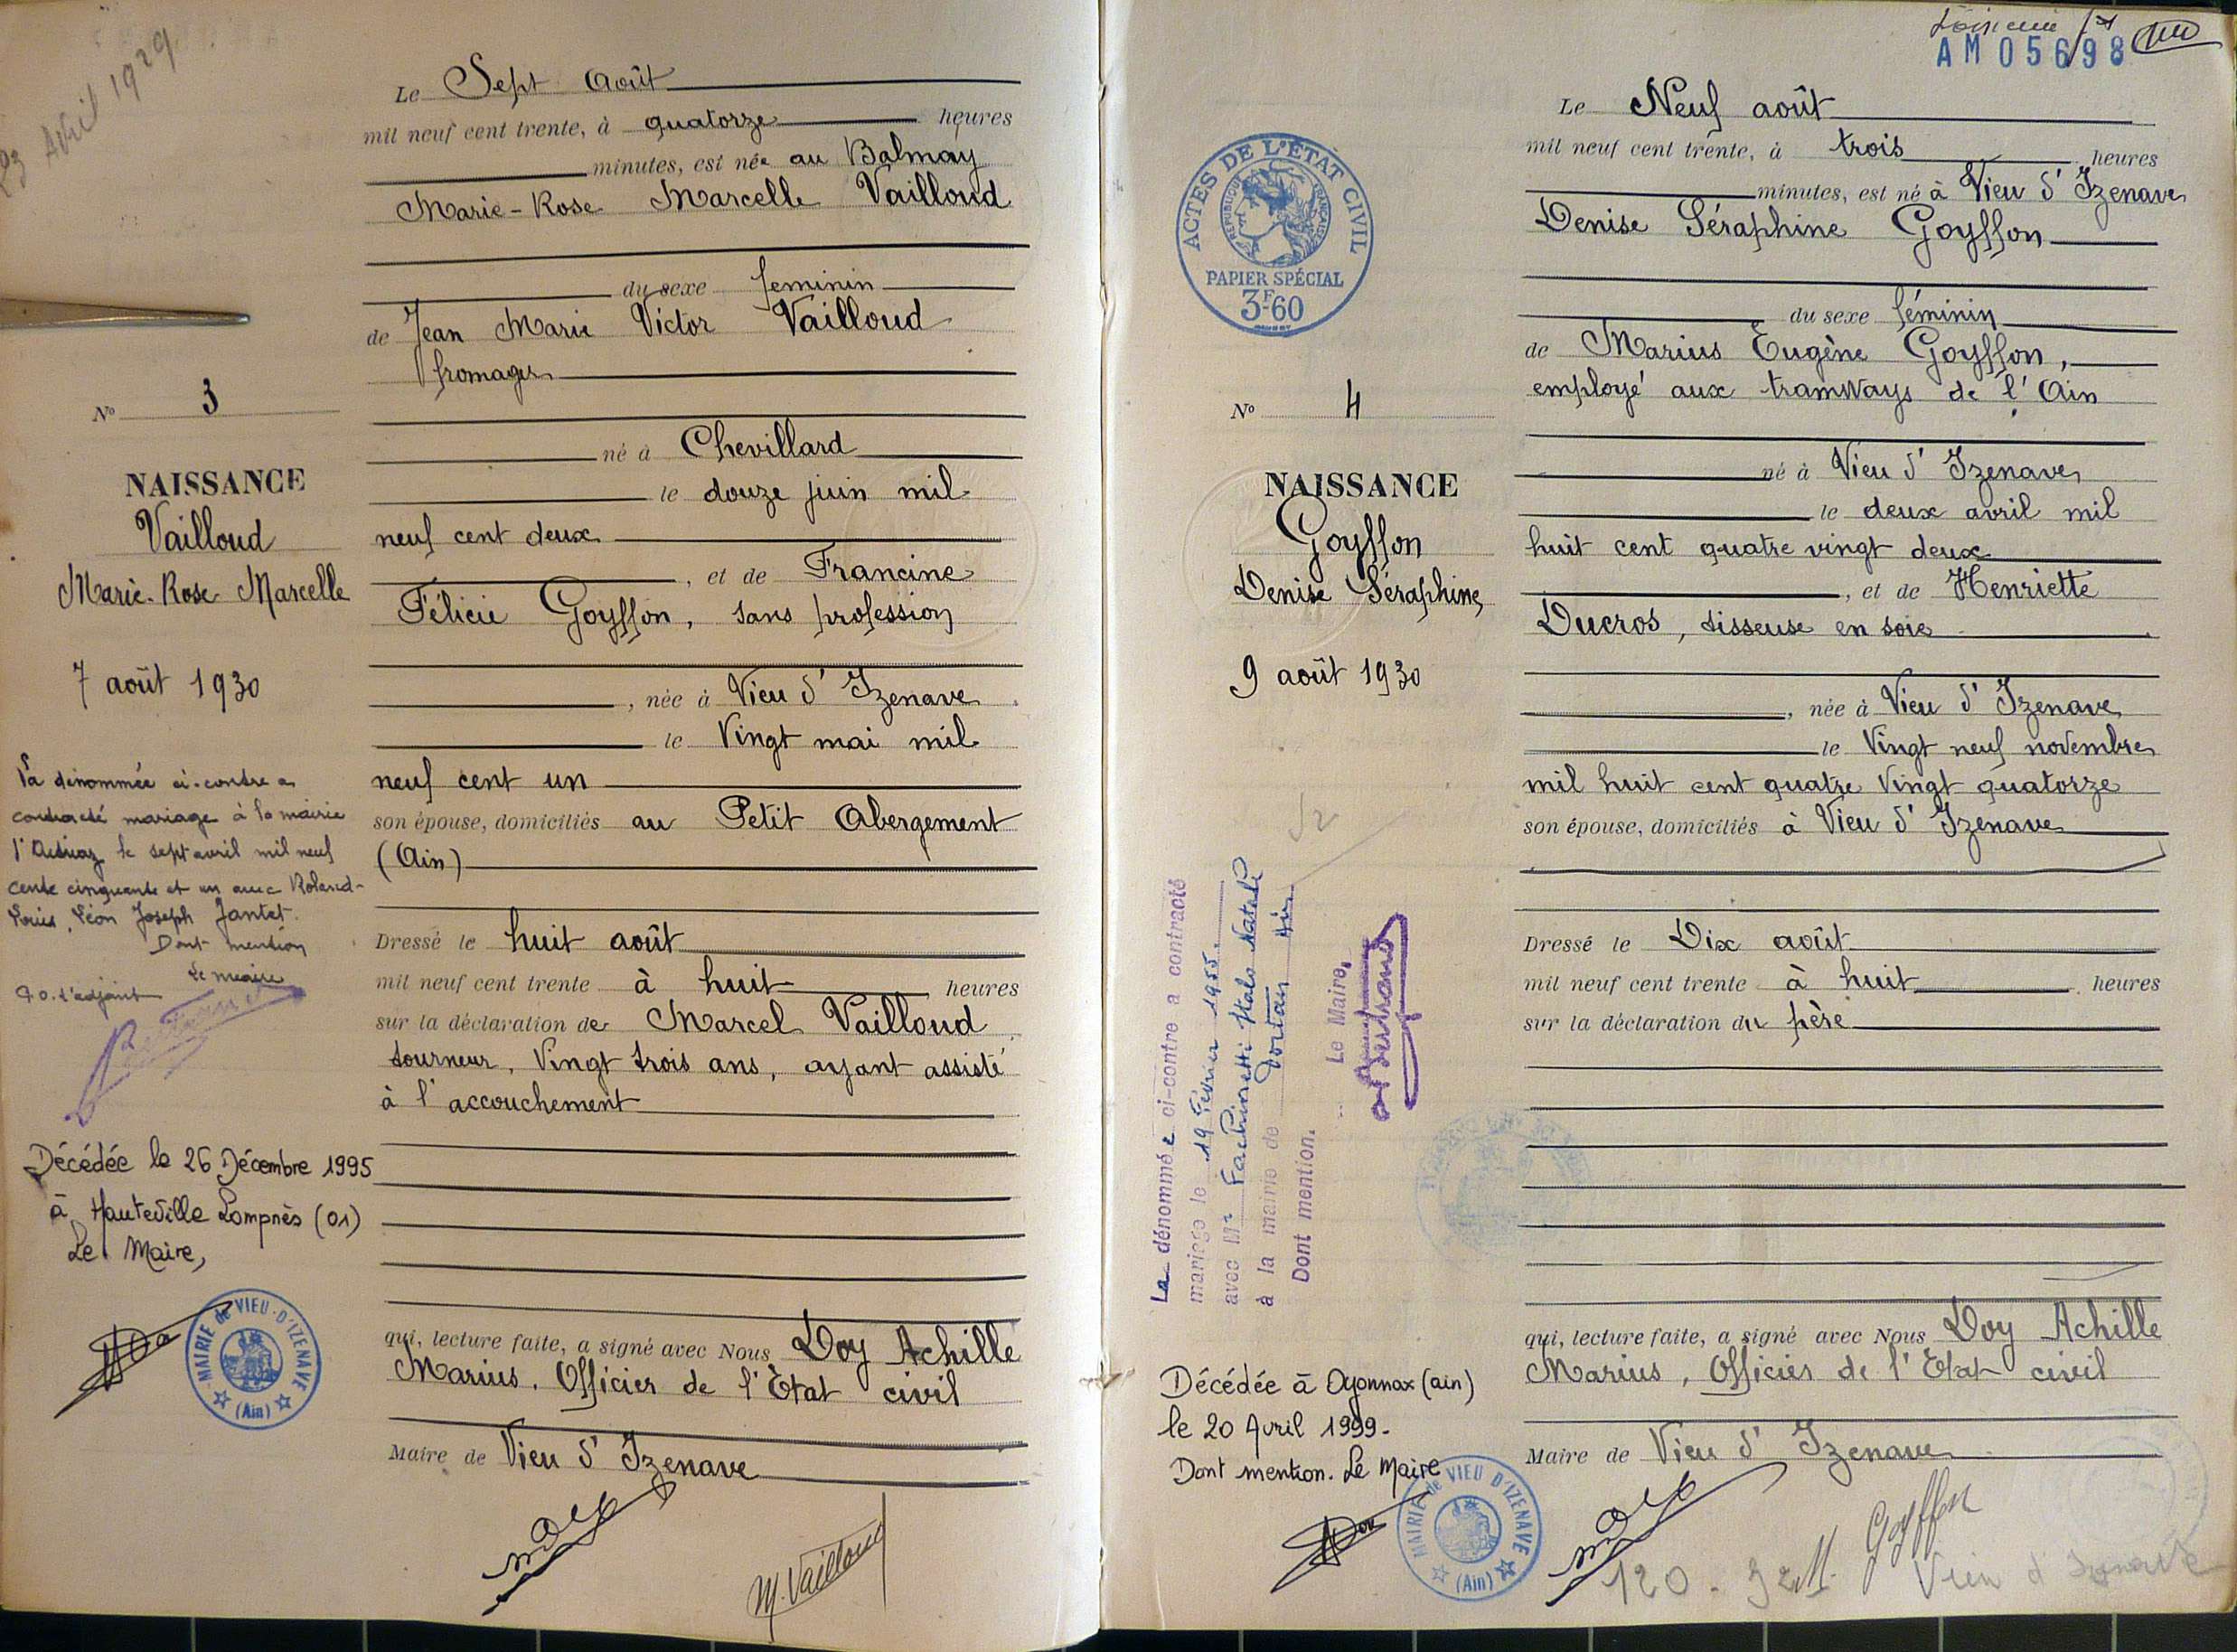 23 Avril 1929
Le Sept Août
mil neuf cent trente, à quatorze heures
minutes, est née au Balmay
Marie-Rose Marcelle Vailloud
du sexe feminin
de Jean Marie Victor Vailloud
fromager
né à Chevillard
le douze juin mil
neuf cent deux
, et de Francine
Félicie Goyffon, sans profession
, née à Vieu d'Izenave
le Vingt mai mil
neuf cent un
son épouse, domiciliés au Petit Abergement
(Ain)
Dressé le huit août
mil neuf cent trente à huit heures
sur la déclaration de Marcel Vailloud
tourneur, Vingt trois ans, ayant assisté
à l'accouchement
qui, lecture faite, a signé avec Nous Doy Achille
Marius, Officier de l'Etat civil
Maire de Vieu d'Izenave
M. Vailloud
No 3
NAISSANCE
Vailloud
Marie-Rose Marcelle
7 août 1930
La dénommée ci-contre a
contracté mariage à la mairie
le sept avril mil neuf
cent cinquante et un avec Roland-
Louis, Léon Joseph Jantet.
Dont mention
Le maire
P.O. L'adjoint
Décédée le 26 Décembre 1995
à Hauteville Lompnès (01)
Le Maire,
MAIRIE de VIEU-D'IZENAVE
(Ain)
AM 05698
Le Neuf août
mil neuf cent trente, à trois heures
minutes, est né à Vieu d'Izenave
Denise Séraphine Goyffon
du sexe féminin
de Marius Eugène Goyffon,
employé aux tramways de l'Ain
né à Vieu d'Izenave
le deux avril mil
huit cent quatre vingt deux
, et de Henriette
Ducros, tisseuse en soie
, née à Vieu d'Izenave
le Vingt neuf novembre
mil huit cent quatre Vingt quatorze
son épouse, domiciliés à Vieu d'Izenave
Dressé le Dix août
mil neuf cent trente à huit heures
sur la déclaration du père
qui, lecture faite, a signé avec Nous Doy Achille
Marius, Officier de l'Etat civil
Maire de Vieu d'Izenave
M. Goyffon
120
Vieu d'Izenave
ACTES DE L'ÉTAT CIVIL
RÉPUBLIQUE FRANÇAISE
PAPIER SPÉCIAL
3F60
No 4
NAISSANCE
Goyffon
Denise Séraphine
9 août 1930
La dénommée ci-contre a contracté
mariage le 19 Février 1955.
avec Mr Fachinetti Italo Natale
à la mairie de Dortan Ain
Dont mention.
Le Maire,
Décédée à Oyonnax (ain)
le 20 Avril 1999.
Dont mention. Le Maire
MAIRIE de VIEU D'IZENAVE
(Ain)